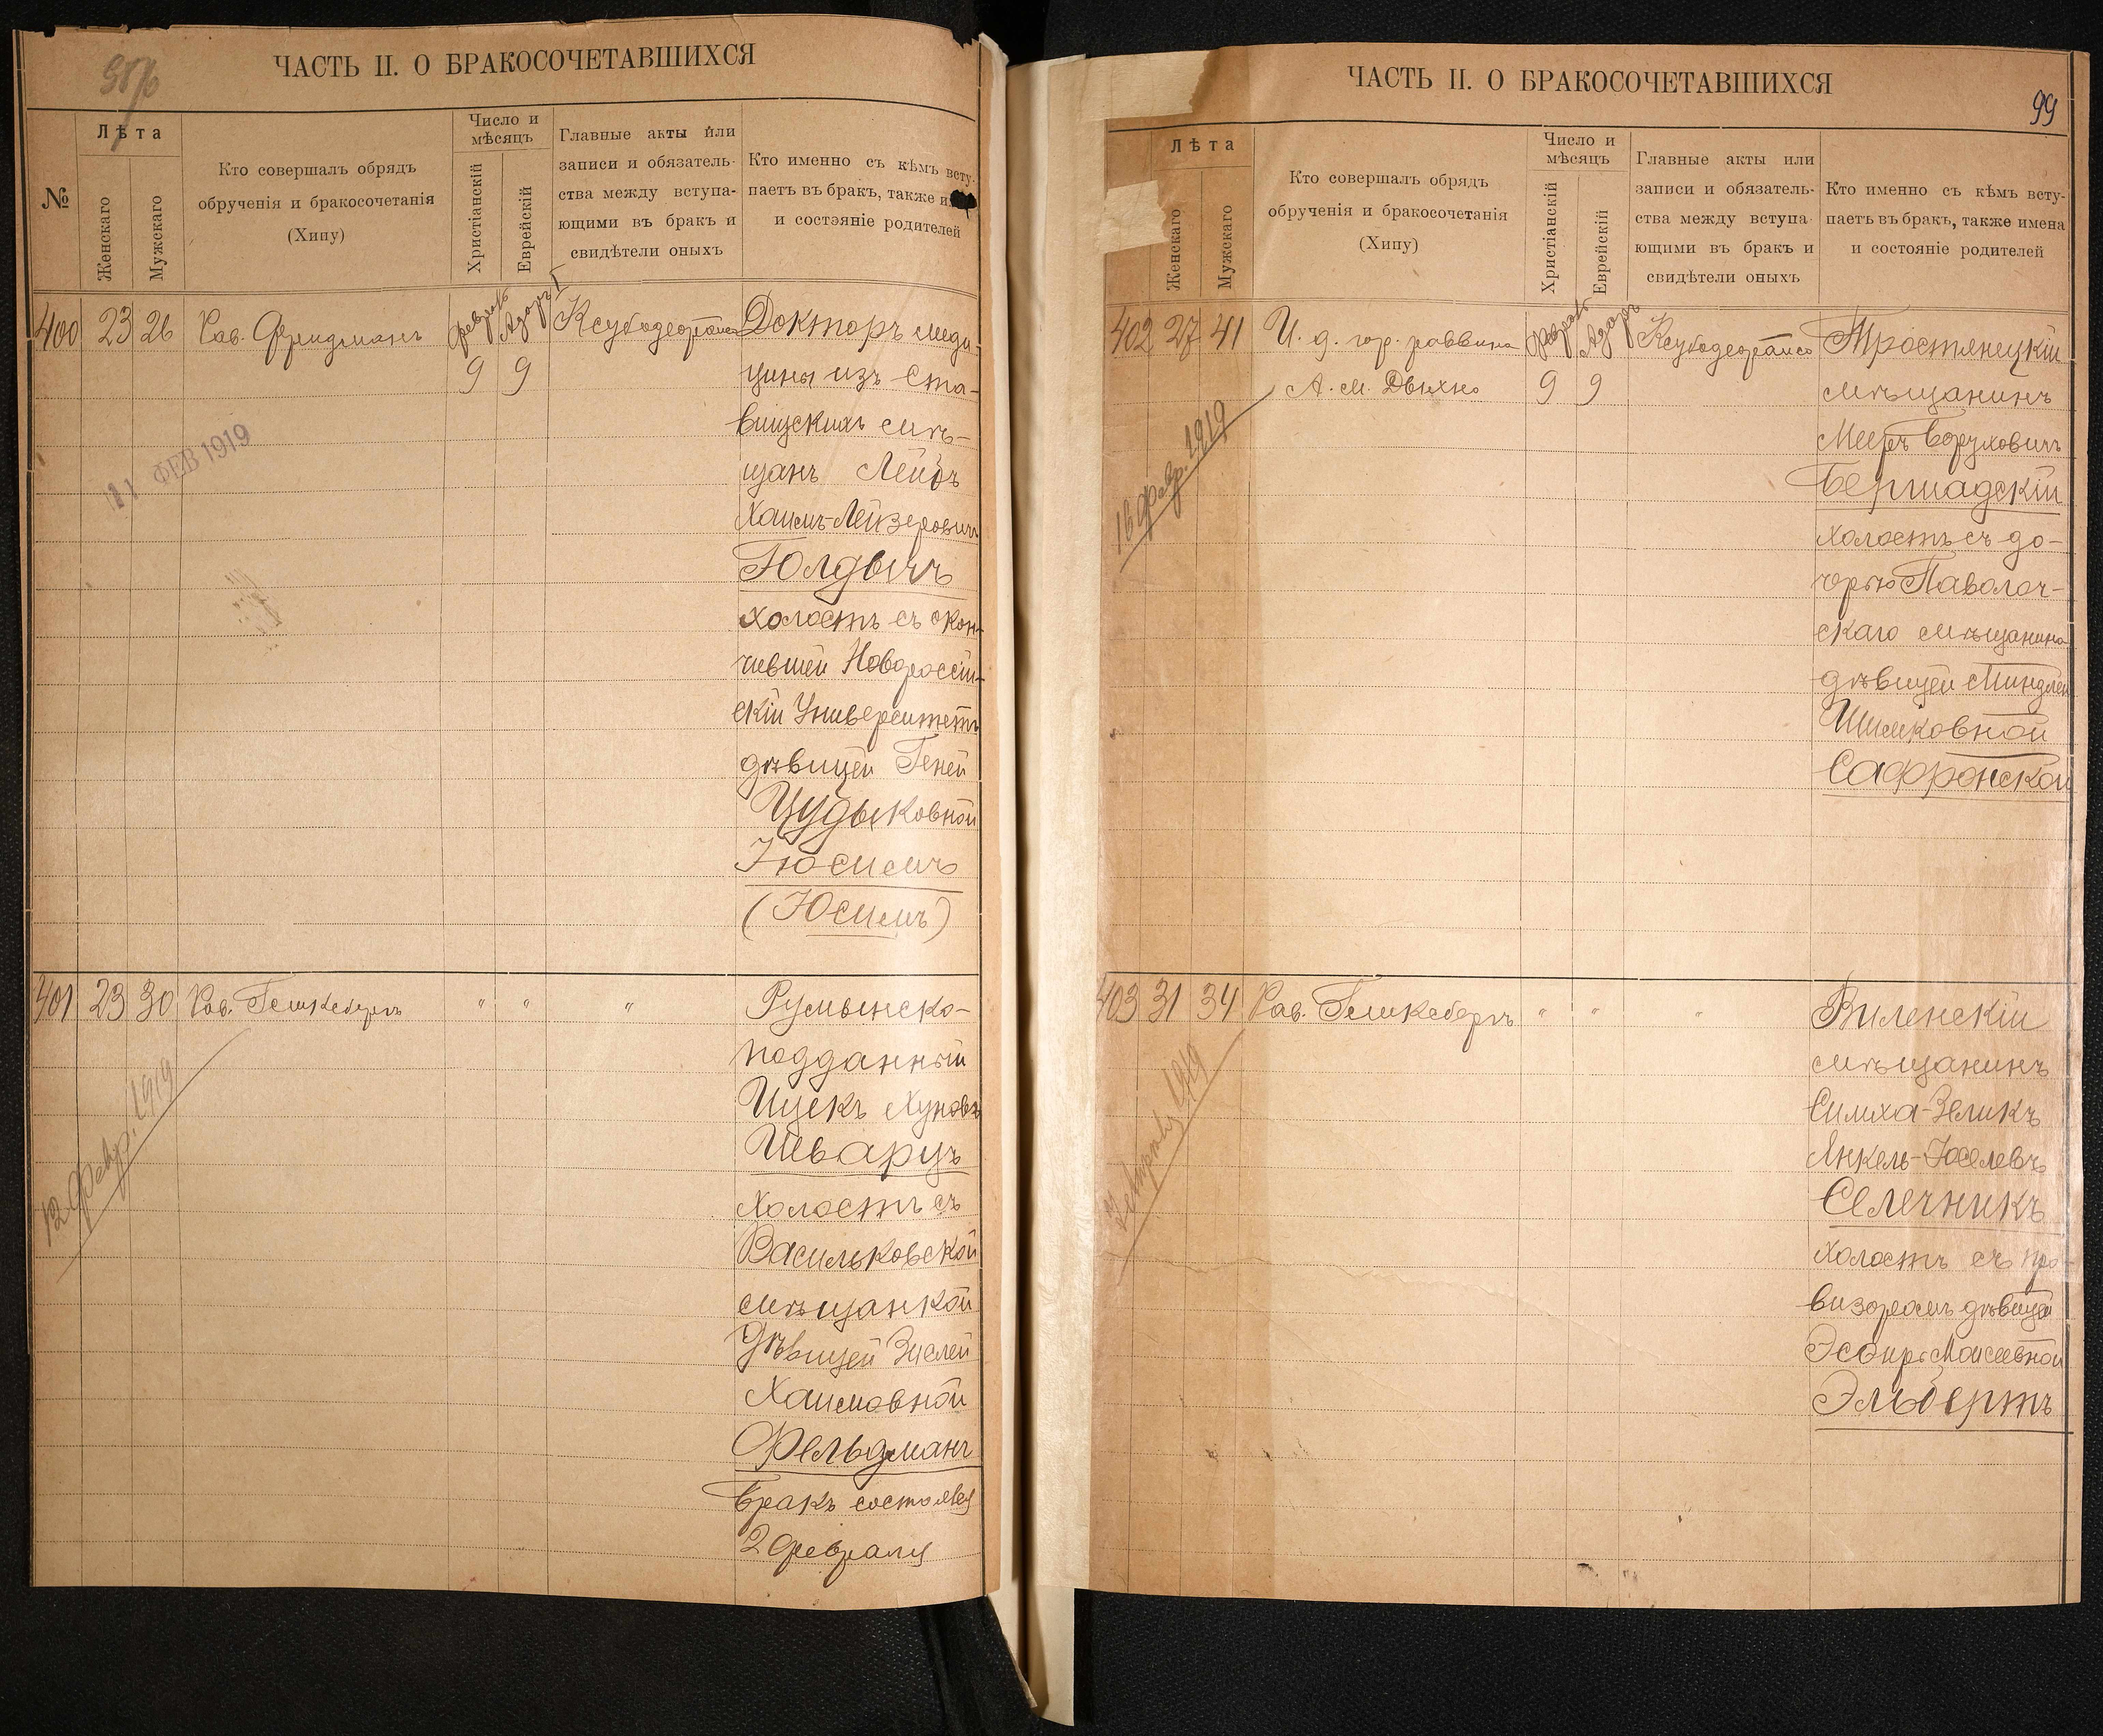 ЧАСТЬ II. О БРАКОСОЧЕТАВШИХСЯ
№
Лѣта
Женскаго
Мужскаго
Кто совершалъ обрядъ
обрученія и бракосочетанія
(Хипу)
Число и
мѣсяцъ
Христіанскій
Еврейскій
Главные акты или
записи и обязатель-
ства между вступа-
ющими въ бракъ и
свидѣтели оныхъ
Кто именно съ кѣмъ всту-
паетъ въ бракъ, также
и состояніе родителей
400 23 26 Рав. Фридманъ
9 9
Доктор меди-
цины изъ Ста-
вищскихъ мѣ-
щанъ Лейбъ
Хаимъ-Лейзеровичъ
Голдычъ
холостъ съ окон-
чившей Новороссій-
скій Университетъ
дѣвицей Геней
Цудыковной
Іюсимъ
(Юсимъ)
11 ФЕВ 1919
401 23 30 Рав. Гешкебергъ " " "
Румынско-
подданный
Ицекъ
Шварцъ
холостъ съ
Васильковской
мѣщанкой
дѣвицей Зислей
Хаимовной
Фельдманъ
бракъ состоялся
2 февраля
12 февр. 1919
ЧАСТЬ II. О БРАКОСОЧЕТАВШИХСЯ
99
Лѣта
Женскаго
Мужскаго
Кто совершалъ обрядъ
обрученія и бракосочетанія
(Хипу)
Число и
мѣсяцъ
Христіанскій
Еврейскій
Главные акты или
записи и обязатель-
ства между вступа-
ющими въ бракъ и
свидѣтели оныхъ
Кто именно съ кѣмъ всту-
паетъ въ бракъ, также имена
и состояніе родителей
402 27 41 И. д. гор. раввина
А. М. Двихно
9 9
Тростянецкій
мѣщанинъ
Мееръ Боруховичъ
Бершадскій
холостъ съ до-
черью Паволоч-
скаго мѣщанина
дѣвицей Миндлей
Шимковной
Сафронской
16 февр. 1919
403 31 34 Рав. Гешкебергъ " " "
Виленскій
мѣщанинъ
Симха-Зеликъ
Янкель-Іоселевъ
Селечникъ
холостъ съ про-
визоромъ дѣвицей
Эсфирь Моисеевной
Эльбертъ
1919